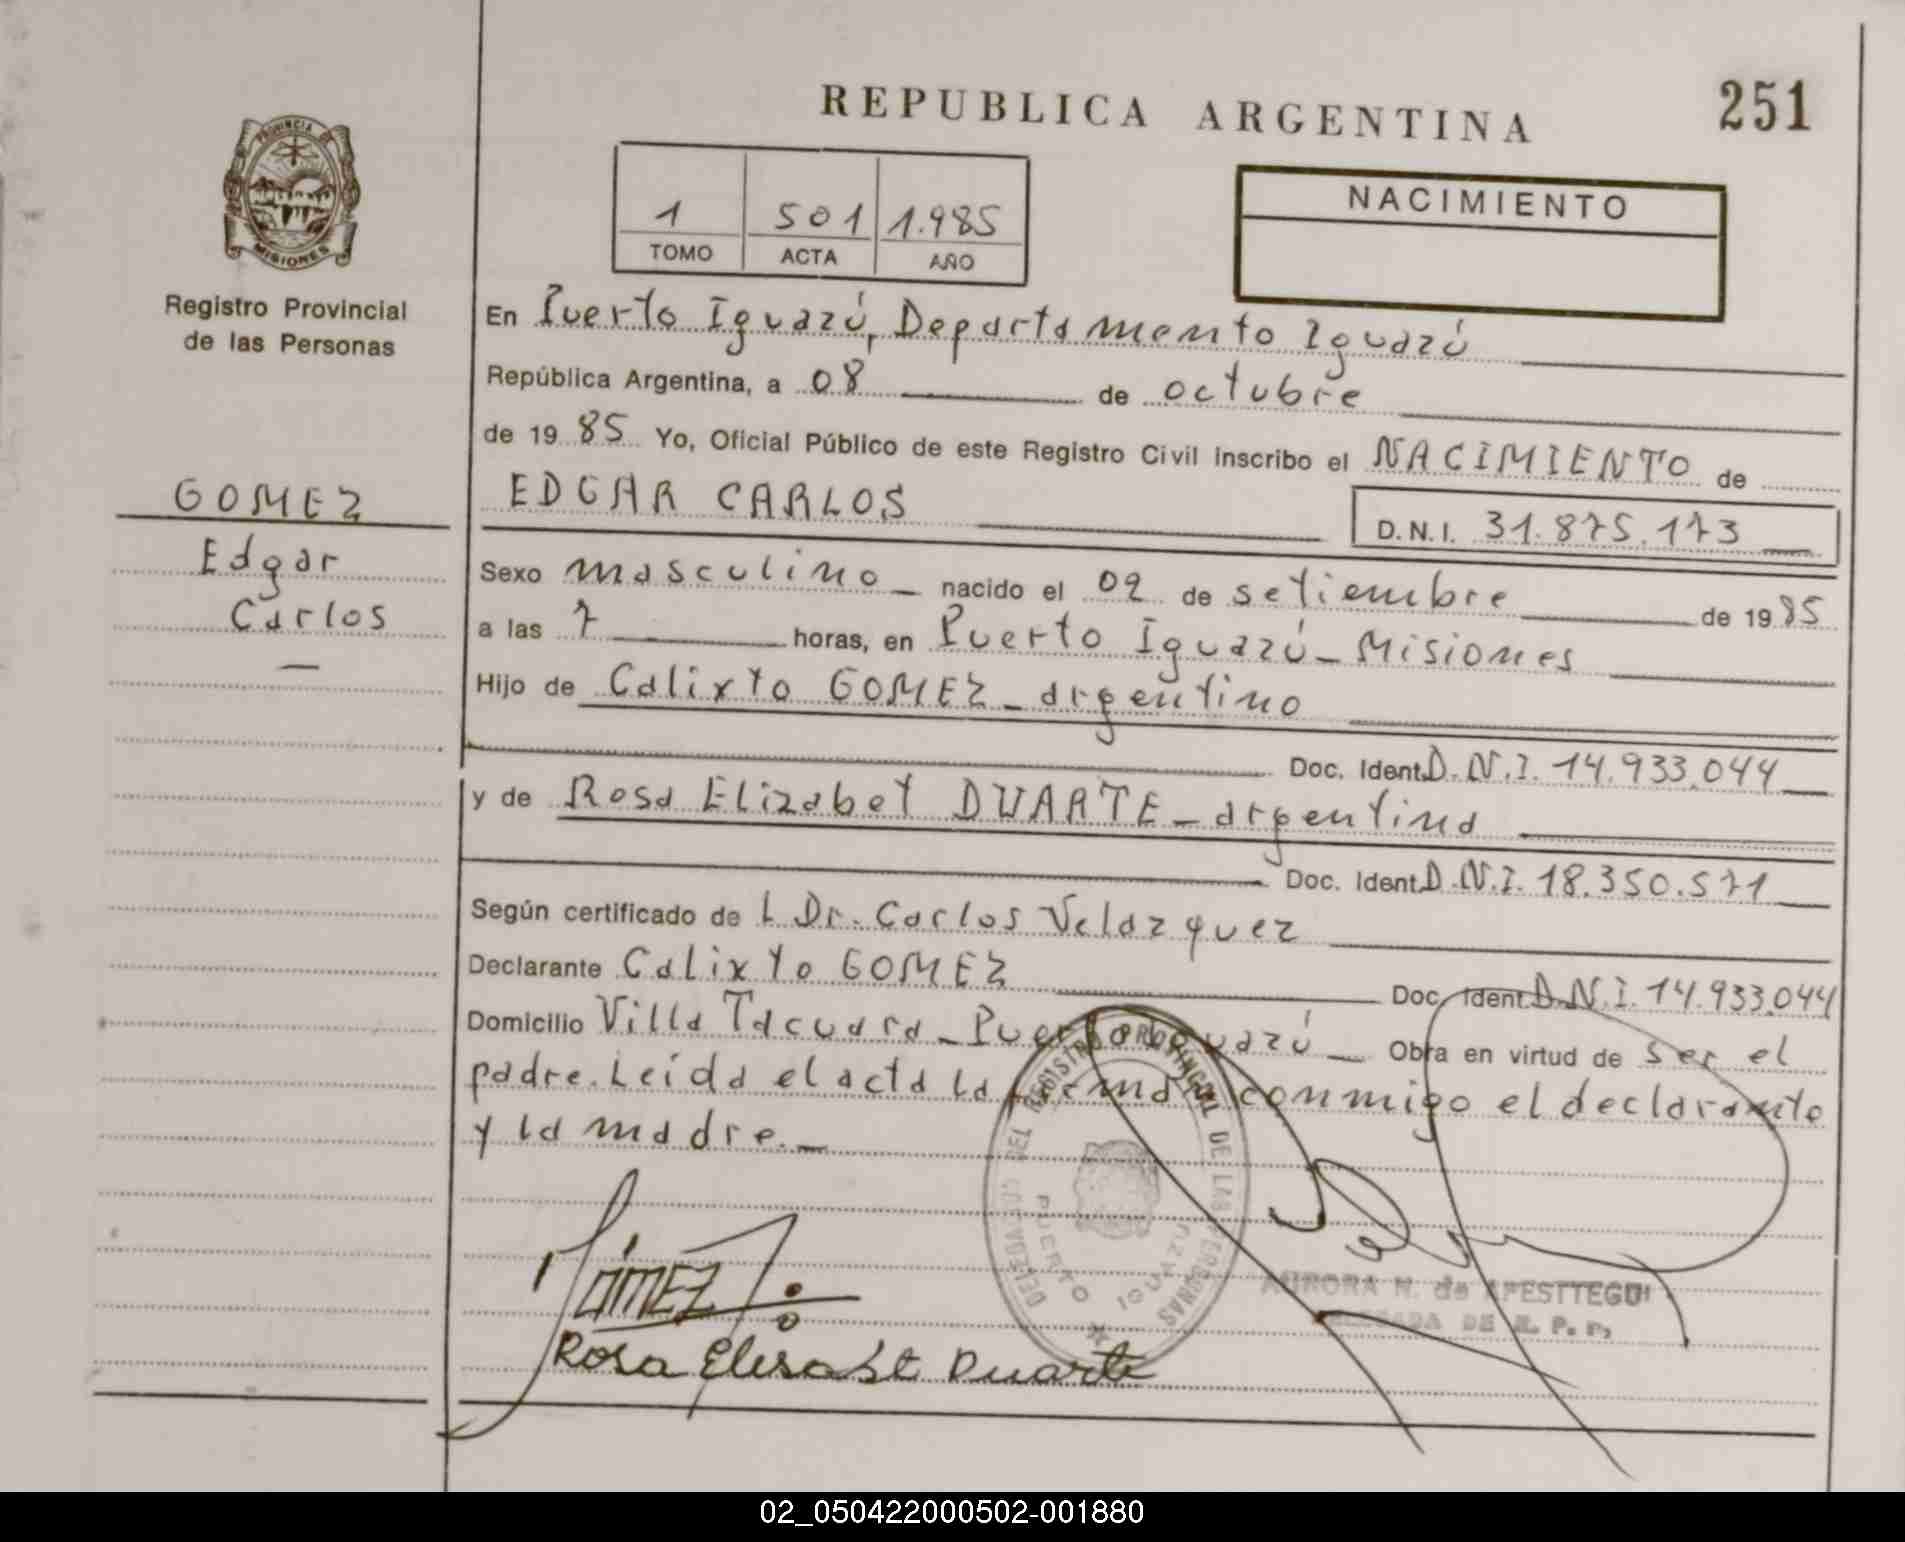 REPUBLICA ARGENTINA
251
PROVINCIA DE
MISIONES
Registro Provincial
de las Personas
1 501 1.985
TOMO ACTA AÑO
NACIMIENTO
En Puerto Iguazú, Departamento Iguazú
República Argentina, a 08 de octubre
de 1985 Yo, Oficial Público de este Registro Civil inscribo el NACIMIENTO de
GOMEZ
Edgar
Carlos
EDGAR CARLOS
D.N.I. 31.875.173
Sexo masculino nacido el 02 de setiembre de 1985
a las 7 horas, en Puerto Iguazú - Misiones
Hijo de Calixto GOMEZ - argentino
Doc. Ident. D.N.I. 14.933.044
y de Rosa Elizabet DUARTE - argentina
Doc. Ident. D.N.I. 18.350.571
Según certificado de L Dr. Carlos Velazquez
Declarante Calixto GOMEZ Doc. Ident. D.N.I. 14.933.044
Domicilio Villa Tacuara - Puerto Iguazú - Obra en virtud de ser el
padre. Leida el acta la firman conmigo el declarante
y la madre. -
DELEGADOS DEL REGISTRO PROVINCIAL DE LAS PERSONAS
PUERTO IGUAZU
GOMEZ
Rosa Elisabet Duarte
AURORA N. de APESTTEGUI
DELEGADA DE R. P. P.
02_050422000502-001880